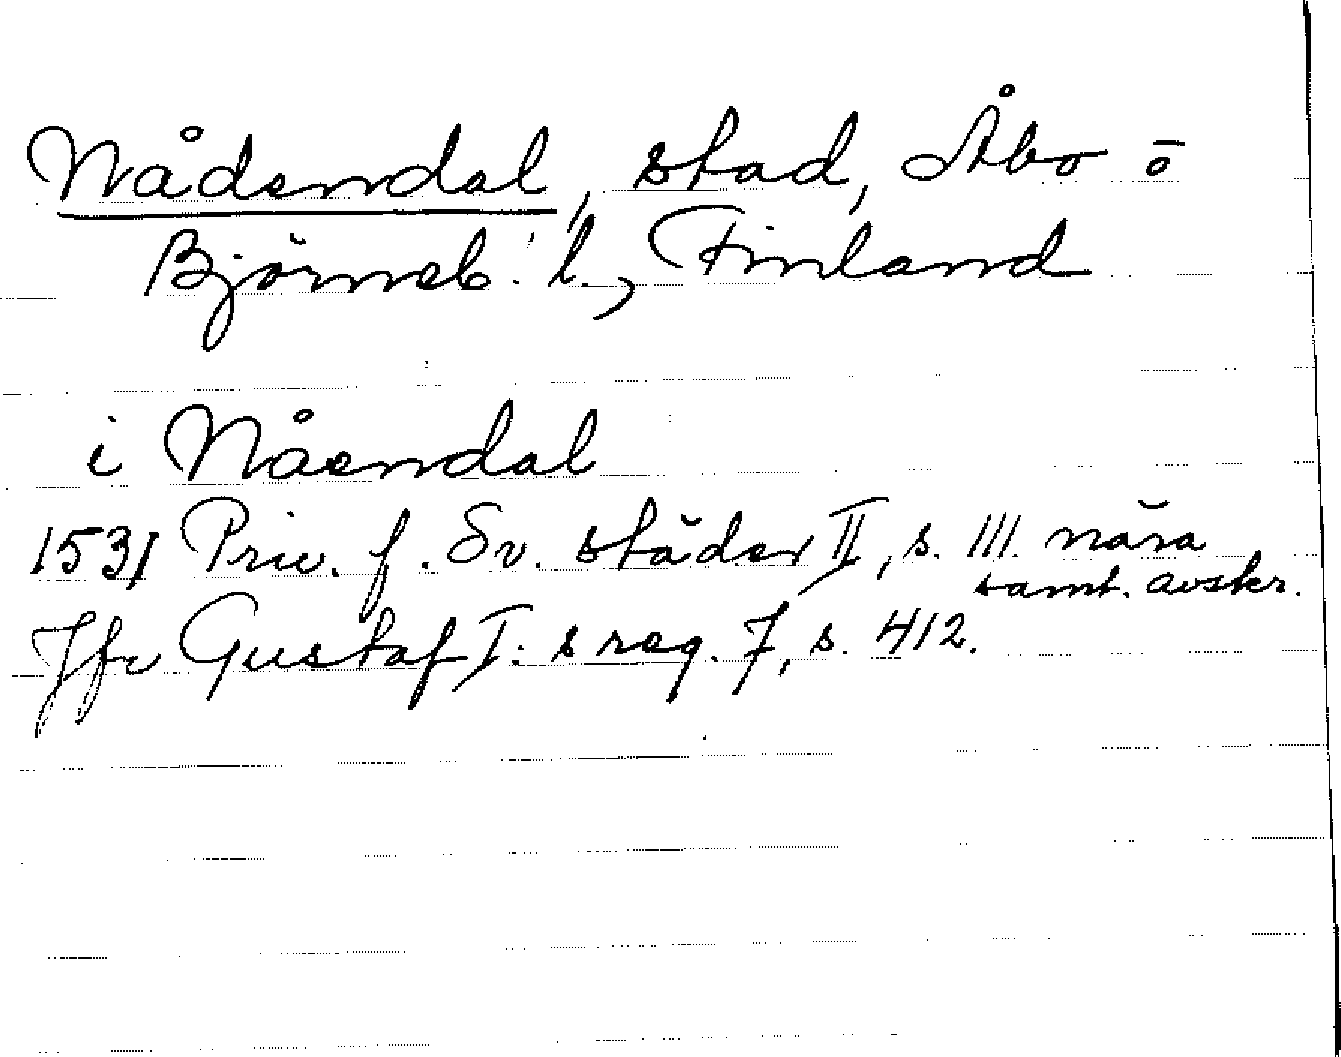 Nådendal, stad, Åbo o
Björneb. l., Finland
i Nåendal
1531 Priv. f. Sv. städer II, s. 111 nära
samt. avskr.
Jfr Gustaf I:s reg. 7, s. 412.